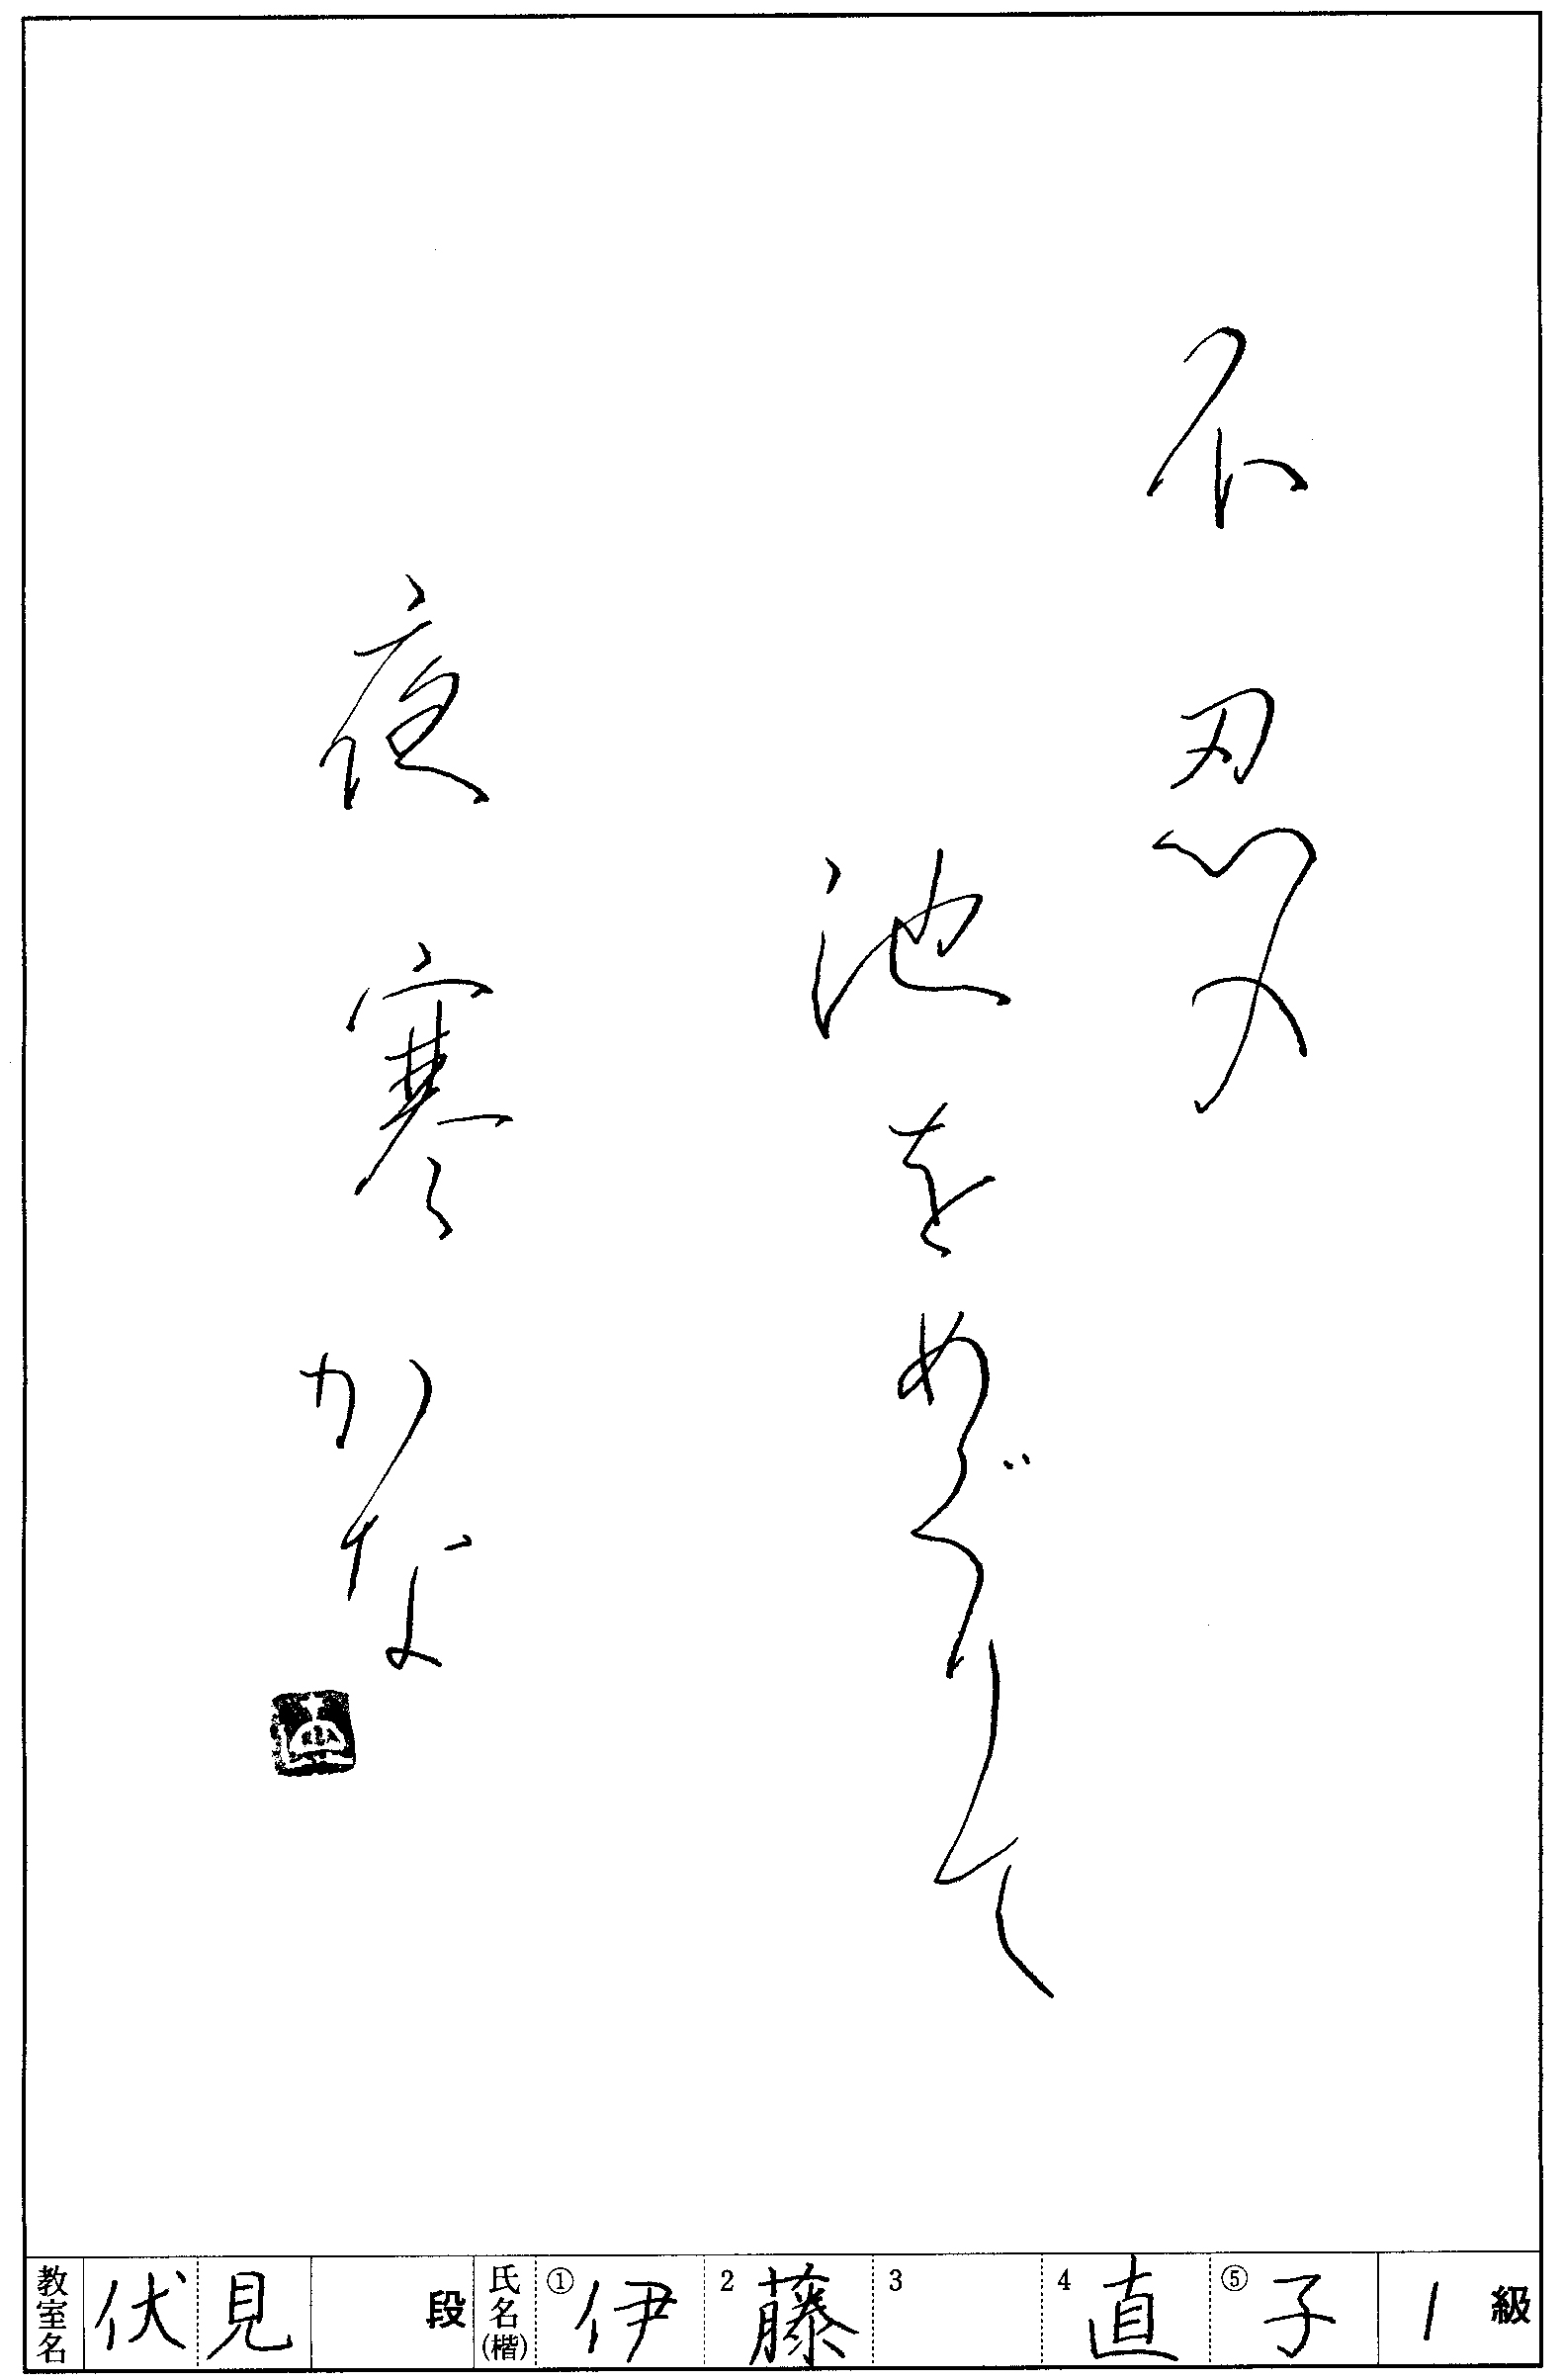 不忍の
池をめぐりて
夜寒かな
教室名 伏見 段 氏名(楷) ① 伊 2 藤 3 4 直 ⑤ 子 1 級